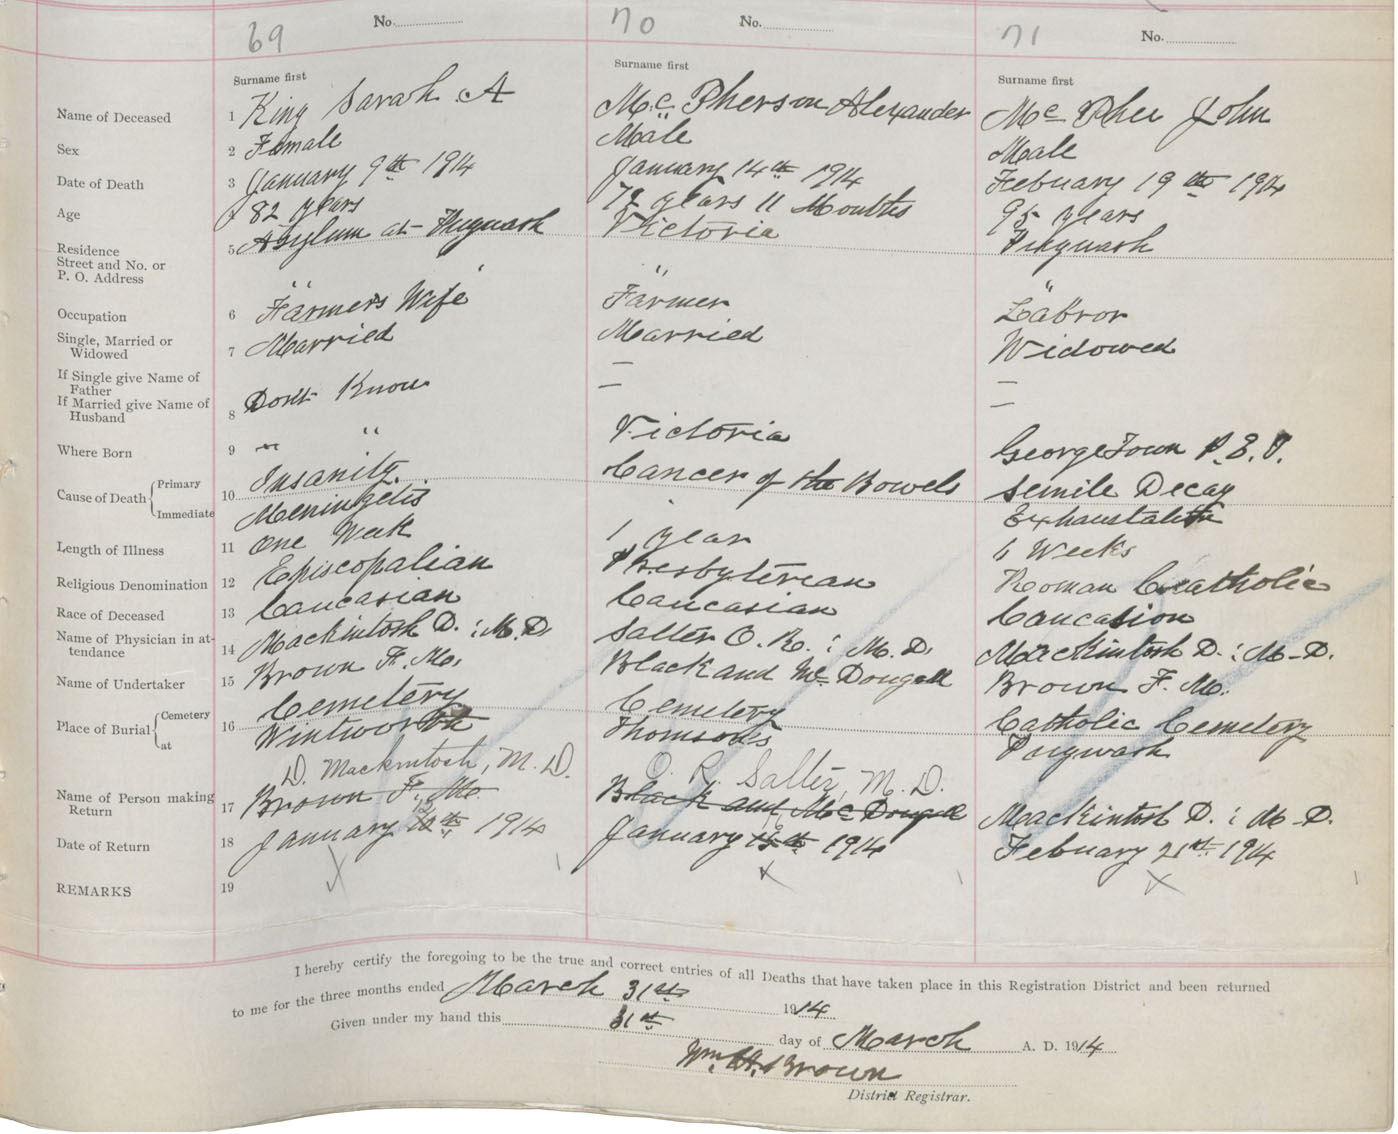 69 No. 70 No. 71 No.
Surname first Surname first Surname first
Name of Deceased 1 King Sarah A Mc Pherson Alexander Mc Phee John
Sex 2 Female Male Male
Date of Death 3 January 9th 1914 January 14th 1914 Febuary 19th 1914
Age 82 years 72 years 11 Months 95 years
Residence 5 Asylum at Pugwash Victoria Pugwash
Street and No. or
P. O. Address
Occupation 6 "Farmers Wife" "Farmer "Labror
Single, Married or 7 Married Married Widowed
Widowed
If Single give Name of — —
Father
If Married give Name of 8 Dont Know — —
Husband
Where Born 9 " " Victoria GeorgeTown P.E.I.
Cause of Death Primary 10 Insanity. Cancer of the Bowels Senile Decay
Immediate Meningetis Exhaustation
Length of Illness 11 One Week 1 year 6 Weeks
Religious Denomination 12 Episcopalian Presbyterian Roman Catholic
Race of Deceased 13 Caucasian Caucasian Caucasion
Name of Physician in at- 14 Mackintosh D. : M.D. Salter O. R. : M.D. Mackintosh D. : M-D.
tendance
Name of Undertaker 15 Brown F. M. Black and Mc Dougall Brown F. M.
Place of Burial Cemetery 16 Cemetery Cemetery Catholic Cemetery
at Wintworth Thomsons Pugwash
D. Mackintosh, M. D. O. R. Salter, M. D.
Name of Person making 17 Brown F. M. Black and Mc Dougall Mackintosh D. : M-D.
Return
Date of Return 18 January th 1914 January 15th 1914 Febuary 21st 1914
REMARKS 19
I hereby certify the foregoing to be the true and correct entries of all Deaths that have taken place in this Registration District and been returned
to me for the three months ended March 31st 1914
Given under my hand this 31st day of March A. D. 1914
Wm. H. Brown
District Registrar.